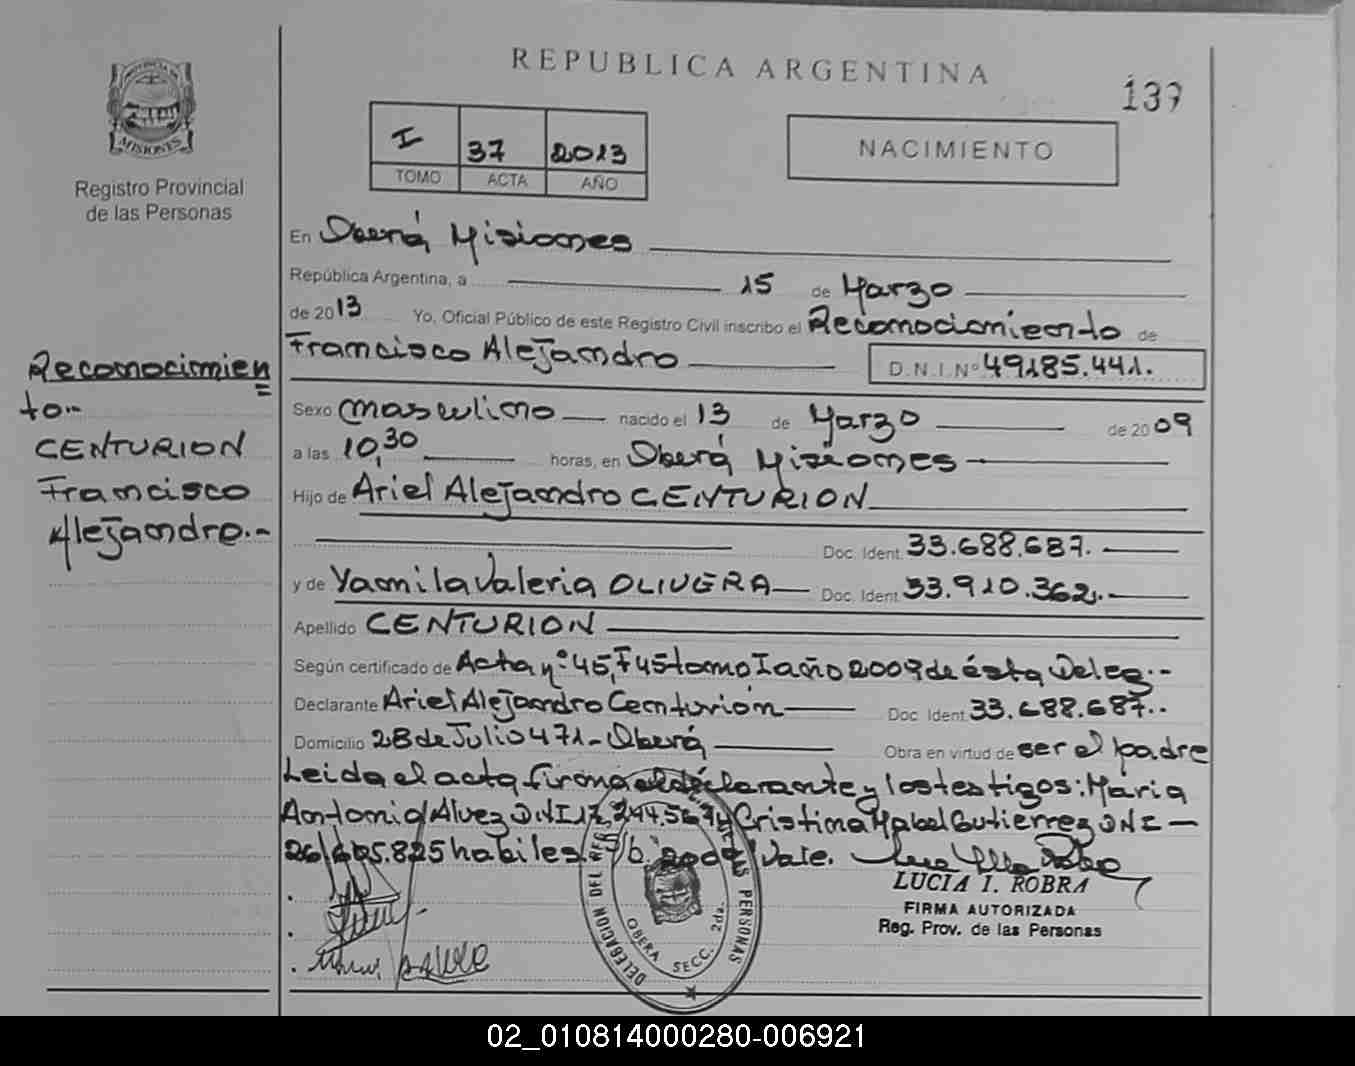 REPUBLICA ARGENTINA
139
PROVINCIA DE
MISIONES
Registro Provincial
de las Personas
I 37 2013
TOMO ACTA AÑO
NACIMIENTO
En Oberá Misiones
República Argentina, a 15 de Marzo
de 2013 Yo, Oficial Público de este Registro Civil inscribo el Reconocimiento de
Francisco Alejandro D.N.I.Nº 49185.441.
Reconocimien
to.-
CENTURION
Francisco
Alejandro.-
Sexo masculino nacido el 13 de Marzo de 2009
a las 10,30 horas, en Oberá Misiones
Hijo de Ariel Alejandro CENTURION
Doc. Ident. 33.688.687.
y de Yamila Valeria OLIVERA Doc. Ident. 33.910.362.
Apellido CENTURION
Según certificado de Acta nº 45, F45 tomo I año 2009 de ésta Deleg.-
Declarante Ariel Alejandro Centurión Doc. Ident. 33.688.687.-
Domicilio 28 de Julio 471- Oberá Obra en virtud de ser el padre
Leida el acta firma el declarante y los testigos: Maria
Antonia Alvez DNI 17. 744.567 y Cristina Mabel Gutierrez DNI-
26.605.825 habiles. S/b. 2009 Vale.
LUCIA I. ROBRA
FIRMA AUTORIZADA
Reg. Prov. de las Personas
DELEGACION DEL REG. PERSONAS
OBERA SECC. 2da.
02_010814000280-006921